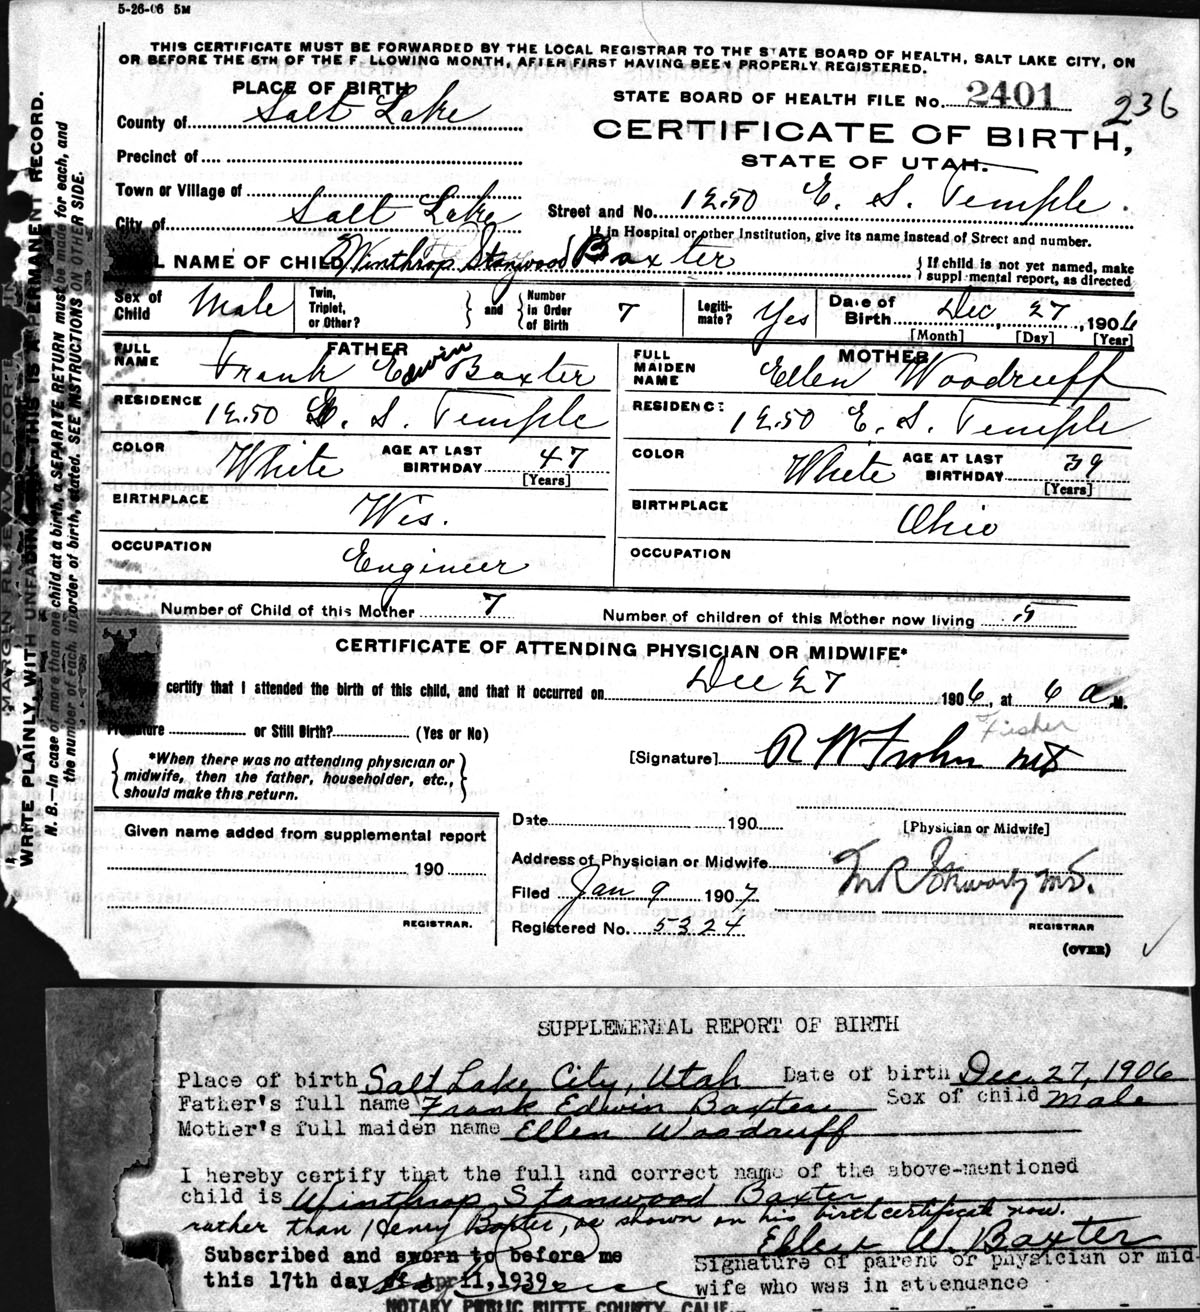 5-26-06 5M
THIS CERTIFICATE MUST BE FORWARDED BY THE LOCAL REGISTRAR TO THE STATE BOARD OF HEALTH, SALT LAKE CITY, ON
OR BEFORE THE 5TH OF THE F LLOWING MONTH, AFTER FIRST HAVING BEEN PROPERLY REGISTERED.
PLACE OF BIRTH
STATE BOARD OF HEALTH FILE No. 2401 236
County of Salt Lake
CERTIFICATE OF BIRTH,
STATE OF UTAH.
Precinct of
Town or Village of
Street and No. 1250 E. S. Temple.
City of Salt Lake
If in Hospital or other Institution, give its name instead of Street and number.
L NAME OF CHILD Winthrop Stanwood Baxter
If child is not yet named, make
suppl mental report, as directed
Sex of Child Male
Twin, Triplet, or Other?
and
Number in Order of Birth 7
Legiti-mate? Yes
Date of Birth Dec, 27, 1906
[Month] [Day] [Year]
FATHER
FULL NAME Frank Edwin Baxter
RESIDENCE 1250 E. S. Temple
COLOR White AGE AT LAST BIRTHDAY 47
[Years]
BIRTHPLACE Wis.
OCCUPATION Engineer
MOTHER
FULL MAIDEN NAME Ellen Woodruff
RESIDENCE 1250 E. S. Temple
COLOR White AGE AT LAST BIRTHDAY 39
[Years]
BIRTHPLACE Ohio
OCCUPATION
Number of Child of this Mother 7 Number of children of this Mother now living 5
CERTIFICATE OF ATTENDING PHYSICIAN OR MIDWIFE*
certify that I attended the birth of this child, and that it occurred on Dec 27 1906, at 6 a M.
Premature or Still Birth? (Yes or No)
Fisher
[Signature] R W
*When there was no attending physician or
midwife, then the father, householder, etc.,
should make this return.
[Physician or Midwife]
Given name added from supplemental report
190
REGISTRAR.
Date 190
Address of Physician or Midwife
Filed Jan 9 1907
Registered No. 5324
REGISTRAR
(OVER)
WRITE PLAINLY WITH UNFADING INK—THIS IS A PERMANENT RECORD.
N. B.—In case of more than one child at a birth, a SEPARATE RETURN must be made for each, and
the number of each, in order of birth, stated. SEE INSTRUCTIONS ON OTHER SIDE.
SUPPLEMENTAL REPORT OF BIRTH
Place of birth Salt Lake City, Utah Date of birth Dec. 27, 1906
Father's full name Frank Edwin Baxter Sex of child Male
Mother's full maiden name Ellen Woodruff
I hereby certify that the full and correct name of the above-mentioned
child is Winthrop Stanwood Baxter
rather than Henry Baxter, as shown on his birth certificate now.
Ellen W. Baxter
Subscribed and sworn to before me
this 17th day of April, 1939.
Signature of parent or physician or mid-
wife who was in attendance
NOTARY PUBLIC BUTTE COUNTY, CALIF.